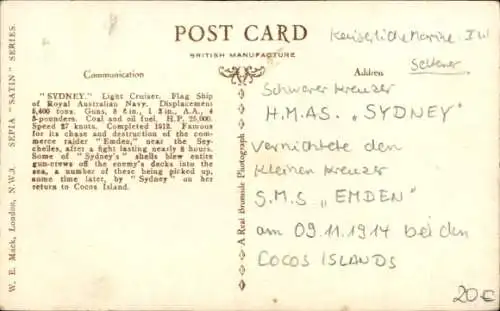 POST CARD
BRITISH MANUFACTURE
Communication
Address
"SYDNEY." Light Cruiser. Flag Ship
of Royal Australian Navy. Displacement
5,400 tons. Guns, 8 6 in., 1 3 in., A.A., 4
3-pounders. Coal and oil fuel. H.P. 25,000.
Speed 27 knots. Completed 1913. Famous
for its chase and destruction of the com-
merce raider "Emden," near the Sey-
chelles, after a fight lasting nearly 2 hours.
Some of "Sydney's" shells blew entire
gun-crews off the enemy's decks into the
sea, a number of these being picked up,
some time later, by "Sydney" on her
return to Cocos Island.
W. E. Mack, London, N.W.3. SEPIA "SATIN" SERIES.
A Real Bromide Photograph
Kaiserliche Marine I WK
Seltener
Schwerer Kreuzer
H.M.AS. „SYDNEY"
vernichtete den
Kleinen Kreuzer
S.M.S „EMDEN"
am 09.11.1914 bei den
COCOS ISLANDS
20€